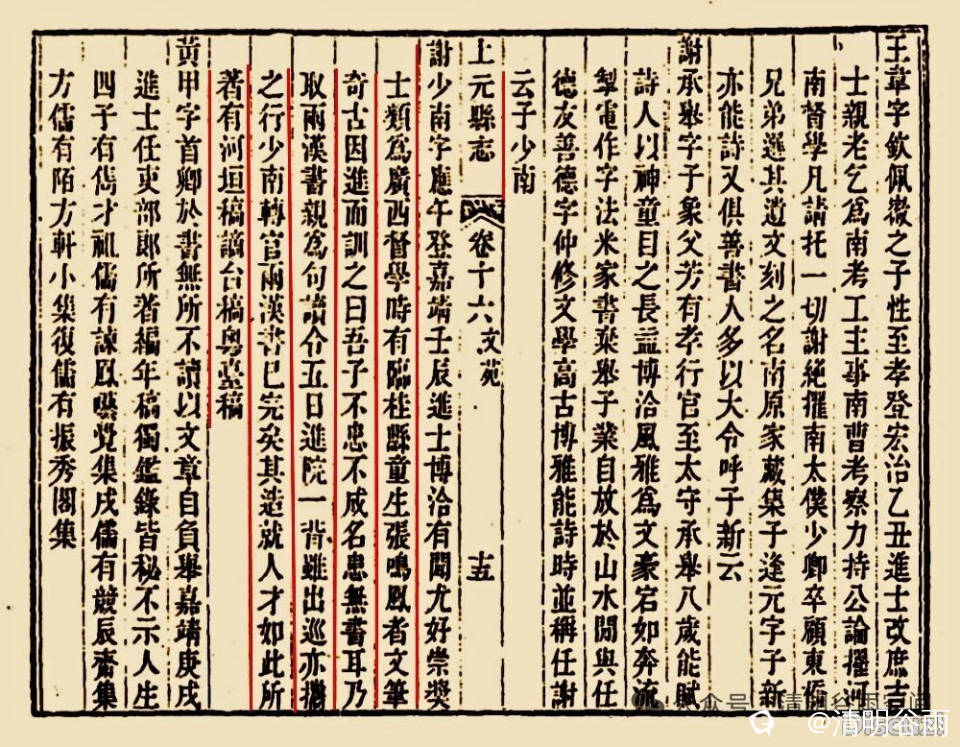 王韋字欽佩徽之子性至孝登宏治乙丑進士改庶吉
士親老乞為南考工主事南曹考察力持公論擢河
南督學凡請托一切謝絶擢南太僕少卿卒顧東橋
兄弟選其遺文刻之名南原家藏集子逢元字子新
亦能詩又俱善書人多以大令呼子新云
謝承舉字子象父芳有孝行官至太守承舉八歲能賦
詩人以神童目之長益博洽風雅為文豪宕如奔流
掣電作字法米家書棄舉子業自放於山水間與任
德友善德字仲修文學高古博雅能詩時並稱任謝
云子少南
上元縣志 卷十六 文苑 十五
謝少南字應午登嘉靖壬辰進士博洽有聞尤好崇獎
士類為廣西督學時有臨桂縣童生張鳴鳳者文筆
奇古因進而訓之曰吾子不忠不成名患無書耳乃
取兩漢書親為句讀令五日進院一背雖出巡亦攜
之行少南轉官兩漢書已完矣其造就人才如此所
著有河垣稿謫台稿粵臺稿
黃甲字首卿於書無所不讀以文章自負舉嘉靖庚戌
進士任吏部郎所著編年稿獨鑑錄皆秘不示人生
四子有雋才祖儒有諫鳳藝黨集戌儒有競辰齋集
方儒有陌方軒小集復儒有振秀閣集
公众号·清明谷雨
@清明谷雨